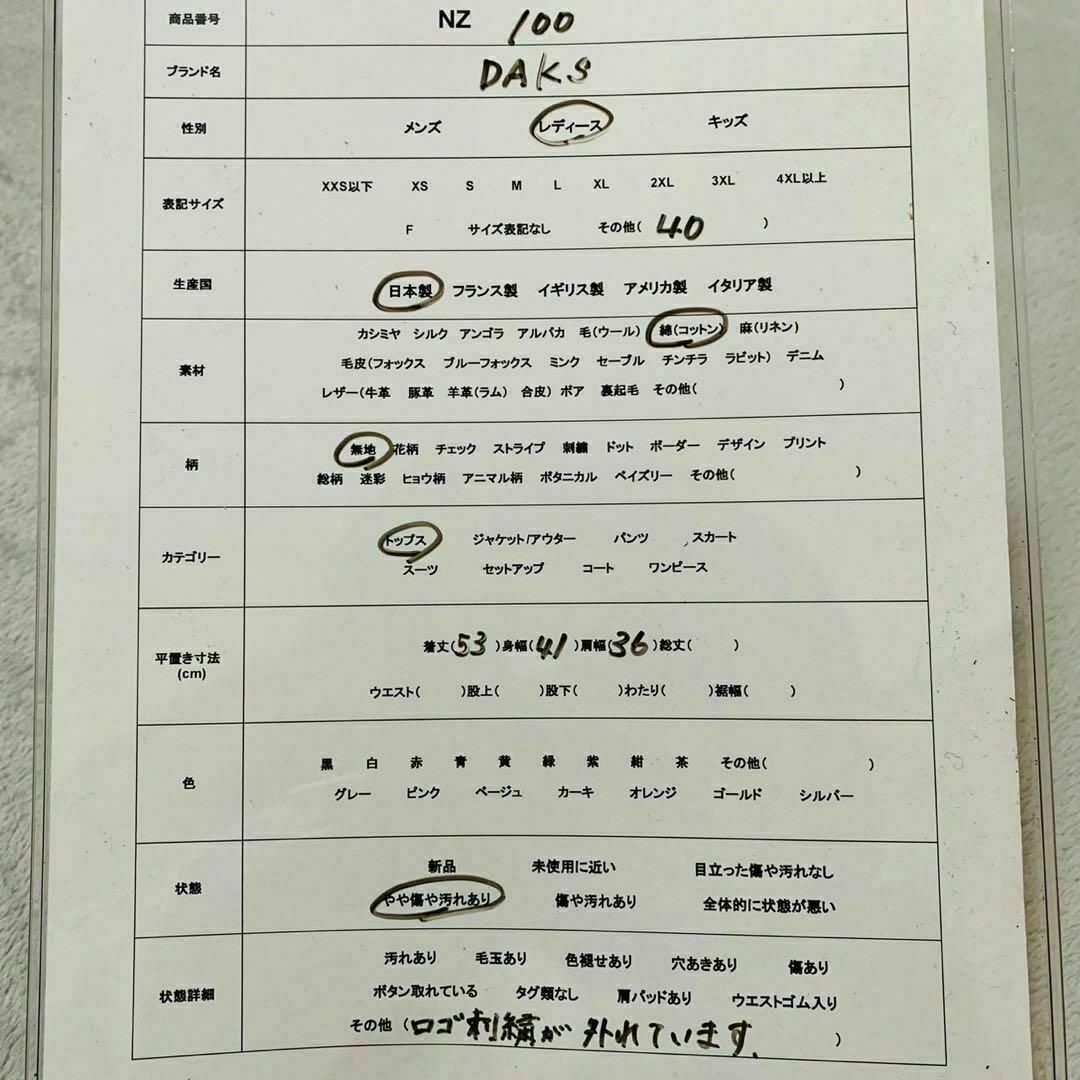 商品番号 NZ 100
ブランド名 DAKS
性別 メンズ レディース キッズ
表記サイズ
XXS以下 XS S M L XL 2XL 3XL 4XL以上
F サイズ表記なし その他( 40 )
生産国 日本製 フランス製 イギリス製 アメリカ製 イタリア製
素材
カシミヤ シルク アンゴラ アルパカ 毛(ウール) 綿(コットン) 麻(リネン)
毛皮(フォックス ブルーフォックス ミンク セーブル チンチラ ラビット) デニム
レザー(牛革 豚革 羊革(ラム) 合皮) ボア 裏起毛 その他( )
柄
無地 花柄 チェック ストライプ 刺繍 ドット ボーダー デザイン プリント
総柄 迷彩 ヒョウ柄 アニマル柄 ボタニカル ペイズリー その他( )
カテゴリー
トップス ジャケット/アウター パンツ スカート
スーツ セットアップ コート ワンピース
平置き寸法
(cm)
着丈(53)身幅(41)肩幅(36)総丈( )
ウエスト( )股上( )股下( )わたり( )裾幅( )
色
黒 白 赤 青 黄 緑 紫 紺 茶 その他( )
グレー ピンク ベージュ カーキ オレンジ ゴールド シルバー
状態
新品 未使用に近い 目立った傷や汚れなし
やや傷や汚れあり 傷や汚れあり 全体的に状態が悪い
状態詳細
汚れあり 毛玉あり 色褪せあり 穴あきあり 傷あり
ボタン取れている タグ類なし 肩パッドあり ウエストゴム入り
その他 (ロゴ刺繍が外れています. )